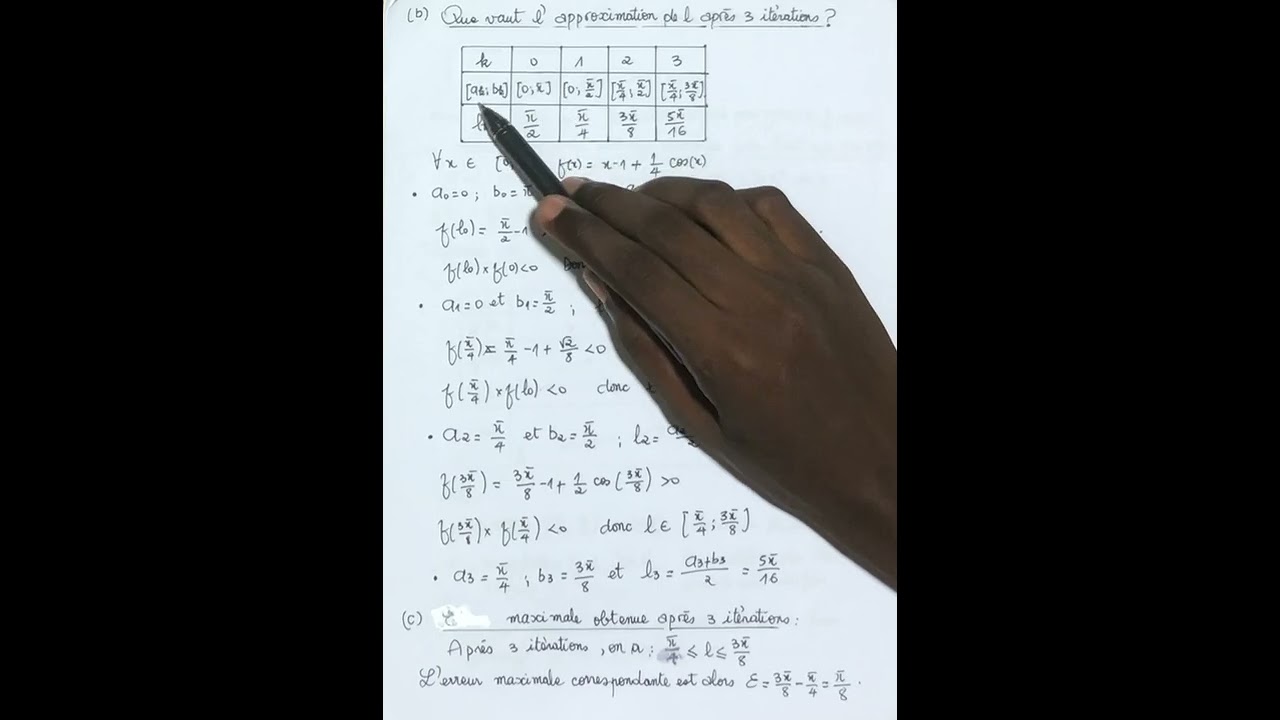 (b) Que vaut l'approximation de l après 3 itérations ?
k 0 1 2 3
[ak; bk] [0; π] [0; π/2] [π/4; π/2] [π/4; 3π/8]
π/2 π/4 3π/8 5π/16
∀x ∈ [0 f(x) = x-1+ 1/4 cos(x)
• a0=0 ; b0=π
f(l0) = π/2 -1
f(l0) × f(0) <0 Don
• a1=0 et b1= π/2 ;
f(π/4) = π/4 -1 + √2/8 <0
f(π/4) × f(l0) <0 donc
• a2= π/4 et b2= π/2 ; l2=
f(3π/8) = 3π/8 -1+ 1/2 cos(3π/8) >0
f(3π/8) × f(π/4) <0 donc l ∈ [π/4; 3π/8]
• a3 = π/4 ; b3 = 3π/8 et l3 = a3+b3/2 = 5π/16
(c) maximale obtenue après 3 itérations :
Après 3 itérations, on a : π/4 ≤ l ≤ 3π/8
L'erreur maximale correspondante est alors ε = 3π/8 - π/4 = π/8 .